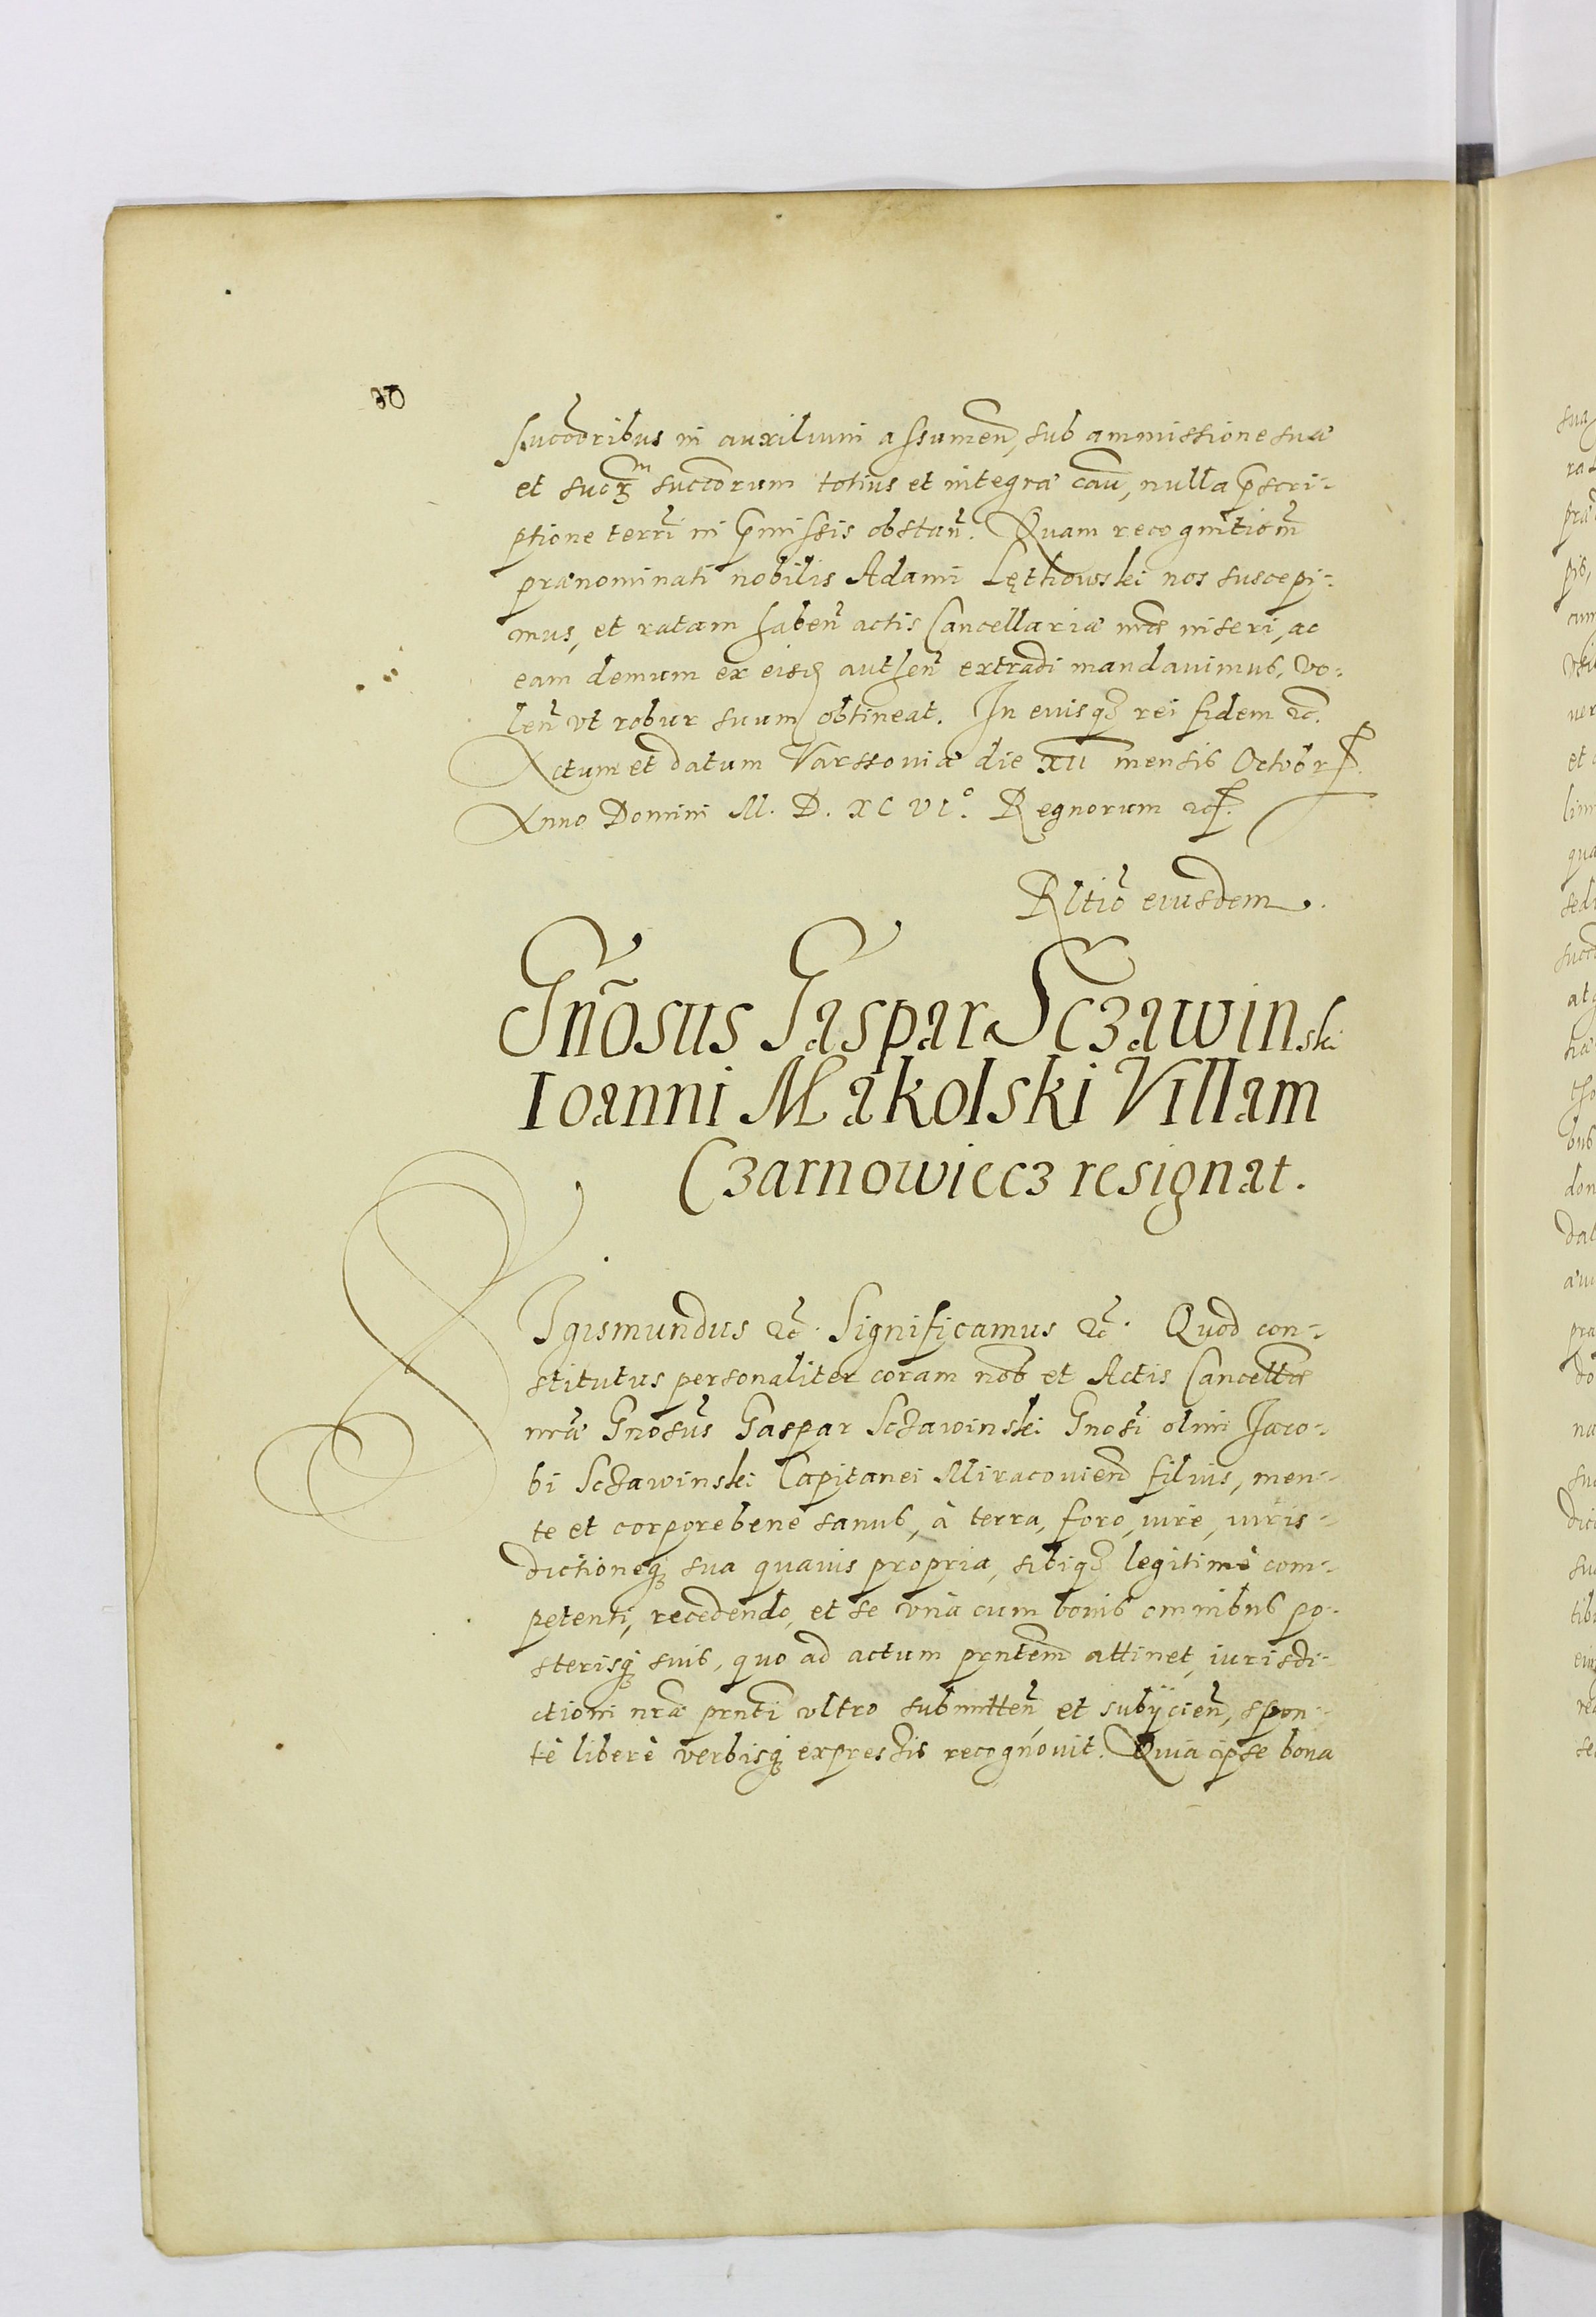 30
succõribus in auxilium assumeñ, sub ammissione suæ
et suoꝝ succõrum totius et integræ cau̅, nulla p̅scri-
ptione terr̃i in p̅missis obstañ. Quam recognitioñ
prænominati nobilis Adami Lęthowski nos suscepi-
mus, et ratam habeñ actis Cancellariæ nr̃æ inseri, ac
eam demum ex eisd̃ autheñ extradi mandauimus, vo-
leñ vt robur suum obtineat. In cuiusq̃ rei fidem ꝛc̃.
Actum et datum Varssouiæ die XII mensis Octobr̃
Anno Domini M. D. XC VI.° Regnorum ꝛc̃.
Rltĩo eiusdem.
Gñosus Gaspar Sczawinski
Ioanni Mąkolski Villam
Czarnowiecz resignat.
SIgismundus ꝛc̃. Significamus ꝛc̃. Quod con-
stitutus personaliter coram nob̃ et Actis Cancell̃æ
nr̃æ Gnosũs Gaspar Sczawinski Gnosĩ olim Jaco-
bi Sczawinski Capitanei Miracouieñ filius, men-
te et corpore bene sanus, à terra, foro, iure, iuris-
dictioneq̃ sua quauis propria, sibiq̃ legitimè com-
petenti, recedendo, et se vnà cum bonis omnibus po-
sterisq̃ suis, quo ad actum prñtem attinet, iurisdi-
ctioni nr̃æ prñti vltro submitteñ, et subijcieñ, spon-
tè liberè verbisq̃ expressis recognouit. Quia ipse bona